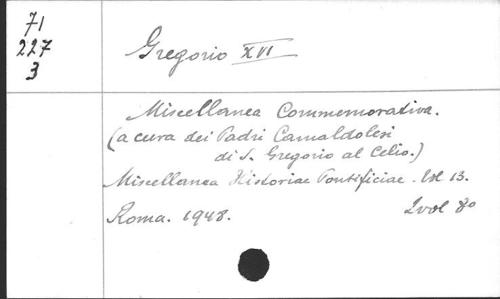 71
227
3
Gregorio XVI
Miscellanea Commemorativa.
(a cura dei Padri Camaldolesi
di S. Gregorio al Celio.)
Miscellanea Historiae Pontificiae. Vol 13.
Roma. 1948. 2 vol 8º